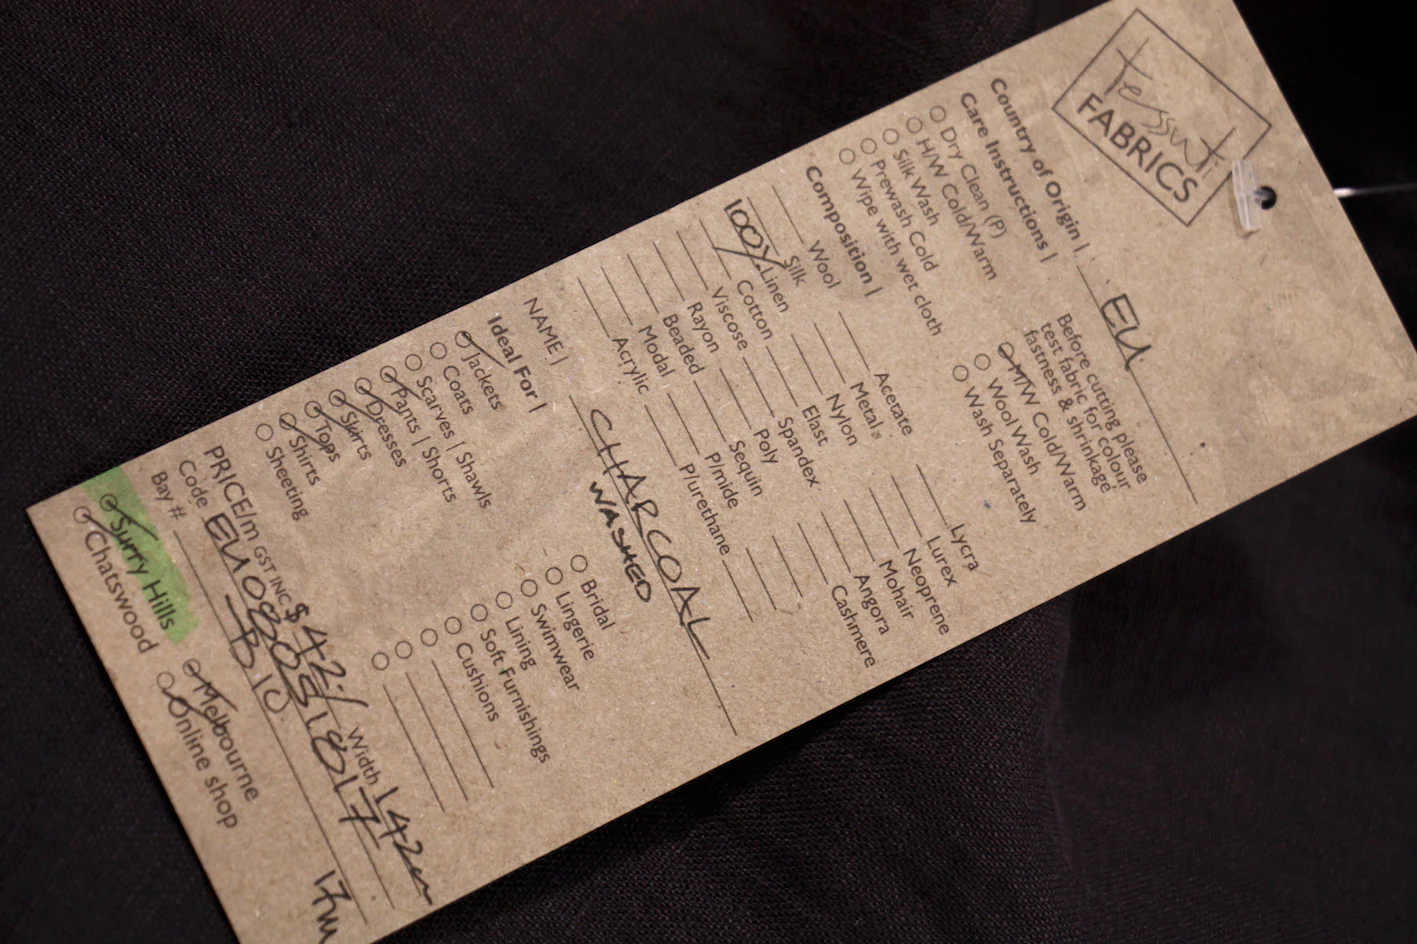 tessuti
FABRICS
Country of Origin | EU
Care Instructions |
Dry Clean (P)
H/W Cold/Warm
Silk Wash
Prewash Cold
Wipe with wet cloth
Before cutting please
test fabric for colour
fastness & shrinkage
M/W Cold/Warm
Wool Wash
Wash Separately
Composition |
Wool Acetate Lycra
Silk Metal Lurex
100% Linen Nylon Neoprene
Cotton Elast Mohair
Viscose Spandex Angora
Rayon Poly Cashmere
Beaded Sequin
Modal P/mide
Acrylic P/urethane
NAME | CHARCOAL
WASHED
Ideal For |
Jackets Bridal
Coats Lingerie
Scarves | Shawls Swimwear
Pants | Shorts Lining
Dresses Soft Furnishings
Skirts Cushions
Tops
Shirts
Sheeting
PRICE/m GST INC $42./ Width 142cm
Code EU080518017
Bay # B10 17m
Surry Hills Melbourne
Chatswood Online shop